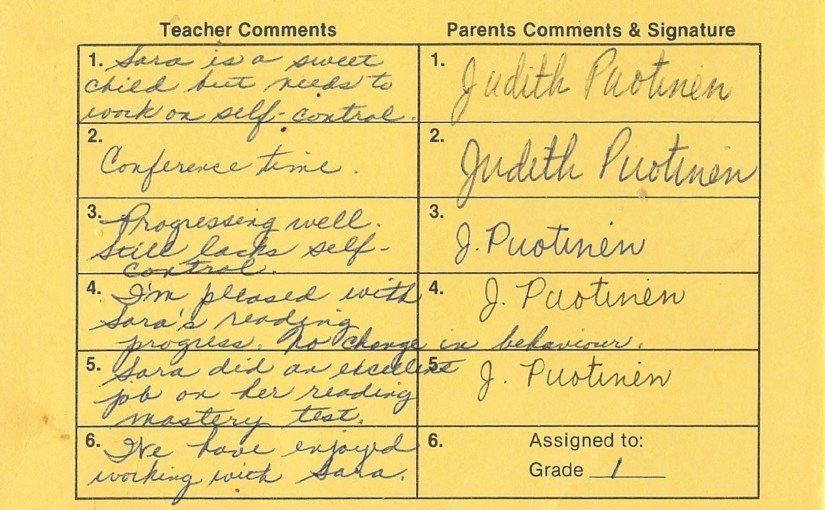 Teacher Comments Parents Comments & Signature
1. Sara is a sweet
child but needs to
work on self-control.
1. Judith Puotinen
2. Conference time.
2. Judith Puotinen
3. Progressing well.
Still lacks self-
control.
3. J. Puotinen
4. I'm pleased with
Sara's reading
progress. No change in behaviour.
4. J. Puotinen
5. Sara did an excellent
job on her reading
mastery test.
5. J. Puotinen
6. I've have enjoyed
working with Sara.
6. Assigned to:
Grade 1